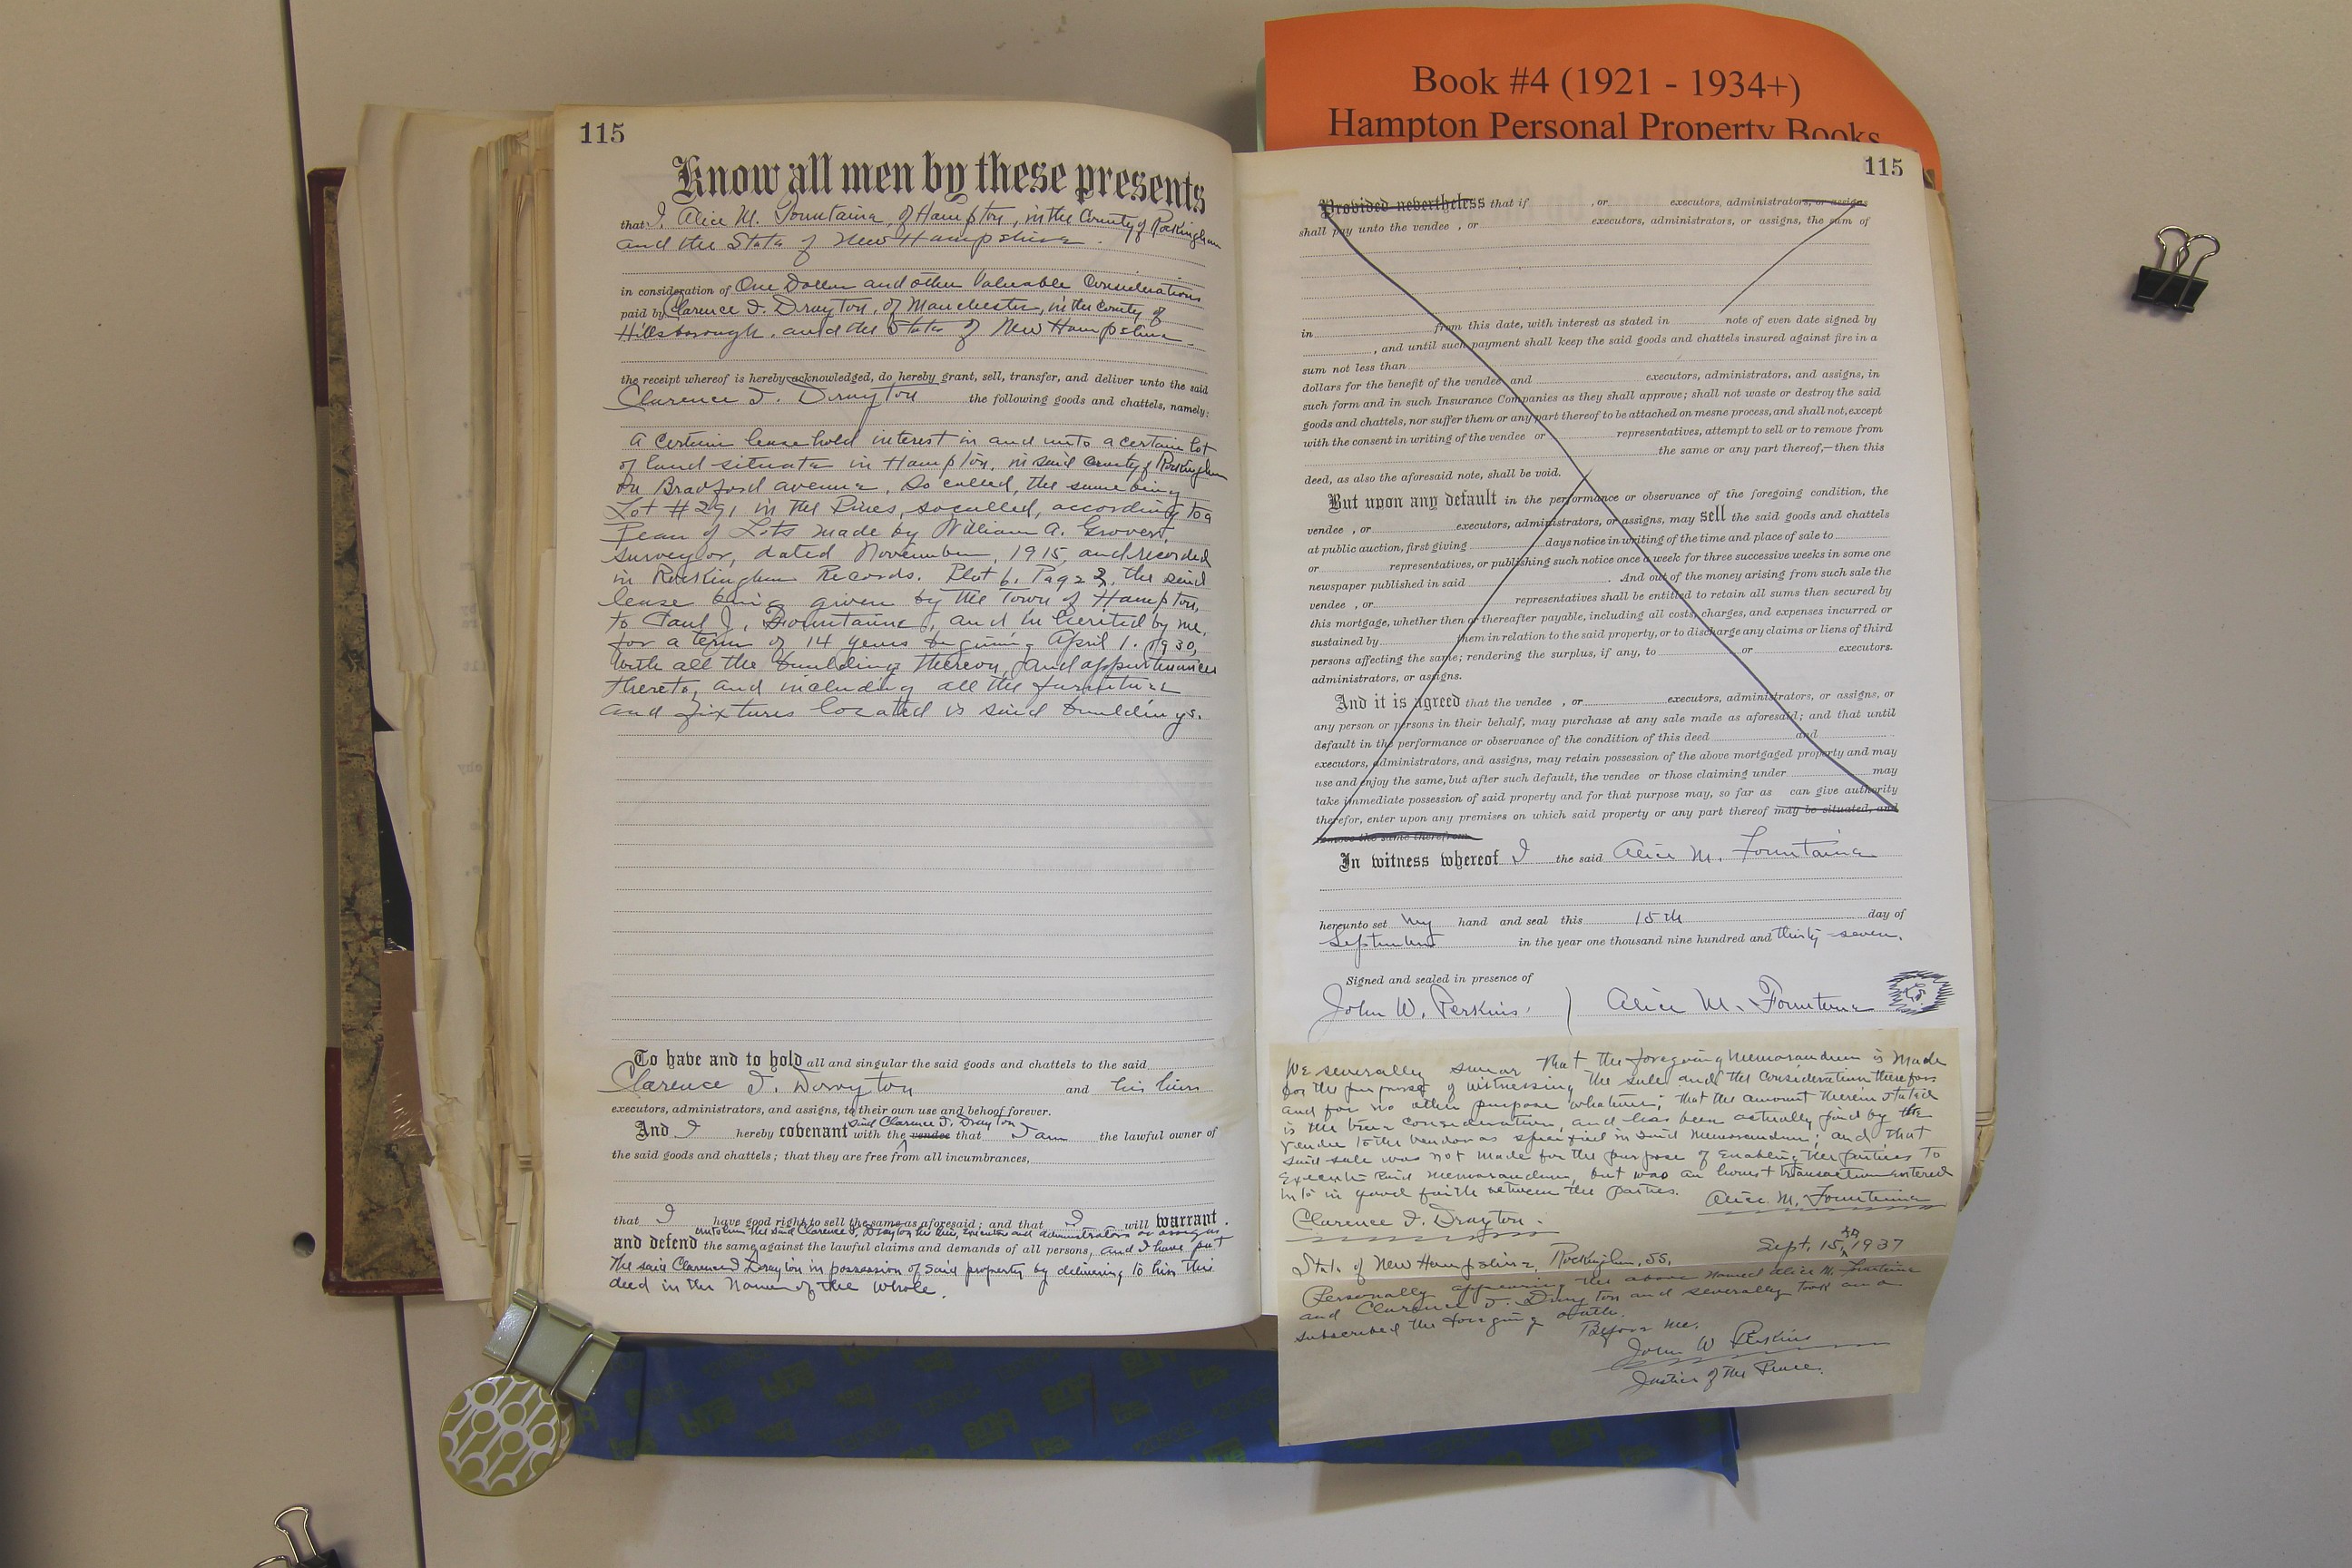 Book #4 (1921 - 1934+)
Hampton Personal Property Books
115
Know all men by these presents
that I, Alice M. Fountaine, of Hampton, in the County of Rockingham
and the State of New Hampshire.
in consideration of One Dollar and other Valuable Considerations
paid by Clarence I. Drayton, of Manchester, in the County of
Hillsborough, and the State of New Hampshire.
the receipt whereof is hereby acknowledged, do hereby grant, sell, transfer, and deliver unto the said
Clarence I. Drayton the following goods and chattels, namely:
A certain lease hold interest in and unto a certain lot
of land situate in Hampton, in said county of Rockingham
On Bradford avenue, so called, the same being
Lot #291 in the Pines, so called, according to a
Plan of Lots made by William A. Grover,
surveyor, dated November, 1915, and recorded
in Rockingham Records. Plat 6, Page 23, the said
lease being given by the Town of Hampton,
to Paul J. Fountaine, and inherited by me,
for a term of 14 years begining April 1. 1930,
With all the buildings thereon, and appurtenances
thereto, and including all the furniture
and fixtures located in said buildings.
To have and to hold all and singular the said goods and chattels to the said
Clarence I. Drayton and his heirs
executors, administrators, and assigns, to their own use and behoof forever.
said Clarence I. Drayton
And I hereby covenant with the vendee that I am the lawful owner of
the said goods and chattels; that they are free from all incumbrances,
that I have good right to sell the same as aforesaid; and that I will warrant
unto him the said Clarence I. Drayton his heirs, executors and administrators or assigns
and defend the same against the lawful claims and demands of all persons, and I have put
The said Clarence I Drayton in possession of said property by delivering to him this
deed in the Name of the whole.
115
Provided nevertheless that if , or executors, administrators, or assigns
shall pay unto the vendee , or executors, administrators, or assigns, the sum of
in from this date, with interest as stated in note of even date signed by
, and until such payment shall keep the said goods and chattels insured against fire in a
sum not less than
dollars for the benefit of the vendee and executors, administrators, and assigns, in
such form and in such Insurance Companies as they shall approve; shall not waste or destroy the said
goods and chattels, nor suffer them or any part thereof to be attached on mesne process, and shall not, except
with the consent in writing of the vendee or representatives, attempt to sell or to remove from
the same or any part thereof,—then this
deed, as also the aforesaid note, shall be void.
But upon any default in the performance or observance of the foregoing condition, the
vendee , or executors, administrators, or assigns, may sell the said goods and chattels
at public auction, first giving days notice in writing of the time and place of sale to
or representatives, or publishing such notice once a week for three successive weeks in some one
newspaper published in said . And out of the money arising from such sale the
vendee , or representatives shall be entitled to retain all sums then secured by
this mortgage, whether then or thereafter payable, including all costs, charges, and expenses incurred or
sustained by them in relation to the said property, or to discharge any claims or liens of third
persons affecting the same; rendering the surplus, if any, to or executors.
administrators, or assigns.
And it is agreed that the vendee , or executors, administrators, or assigns, or
any person or persons in their behalf, may purchase at any sale made as aforesaid; and that until
default in the performance or observance of the condition of this deed and
executors, administrators, and assigns, may retain possession of the above mortgaged property and may
use and enjoy the same, but after such default, the vendee or those claiming under may
take immediate possession of said property and for that purpose may, so far as can give authority
therefor, enter upon any premises on which said property or any part thereof may be situated, and
remove the same therefrom.
In witness whereof I the said Alice M. Fountaine
hereunto set my hand and seal this 15th day of
September in the year one thousand nine hundred and thirty-seven.
Signed and sealed in presence of
John W. Perkins. ) Alice M. Fountaine
We severally swear that the foregoing Memorandum is Made
for the purpose of witnessing the sale and the consideration therefor
and for no other purpose whatever; that the amount therein stated
is the true consideration, and has been actually paid by the
vendee to the vendor as specified in said Memorandum; and that
said sale was not made for the purpose of enabling the parties to
execute said memorandum, but was an honest transaction entered
into in good faith between the parties. Alice M. Fountaine
Clarence I. Drayton.
State of New Hampshire, Rockingham, SS. Sept. 15th, 1937
Personally appearing the above named Alice M. Fountaine
and Clarence I. Drayton and severally took and
subscribed the foregoing oath.
Before me.
John W Perkins
Justice of the Peace.